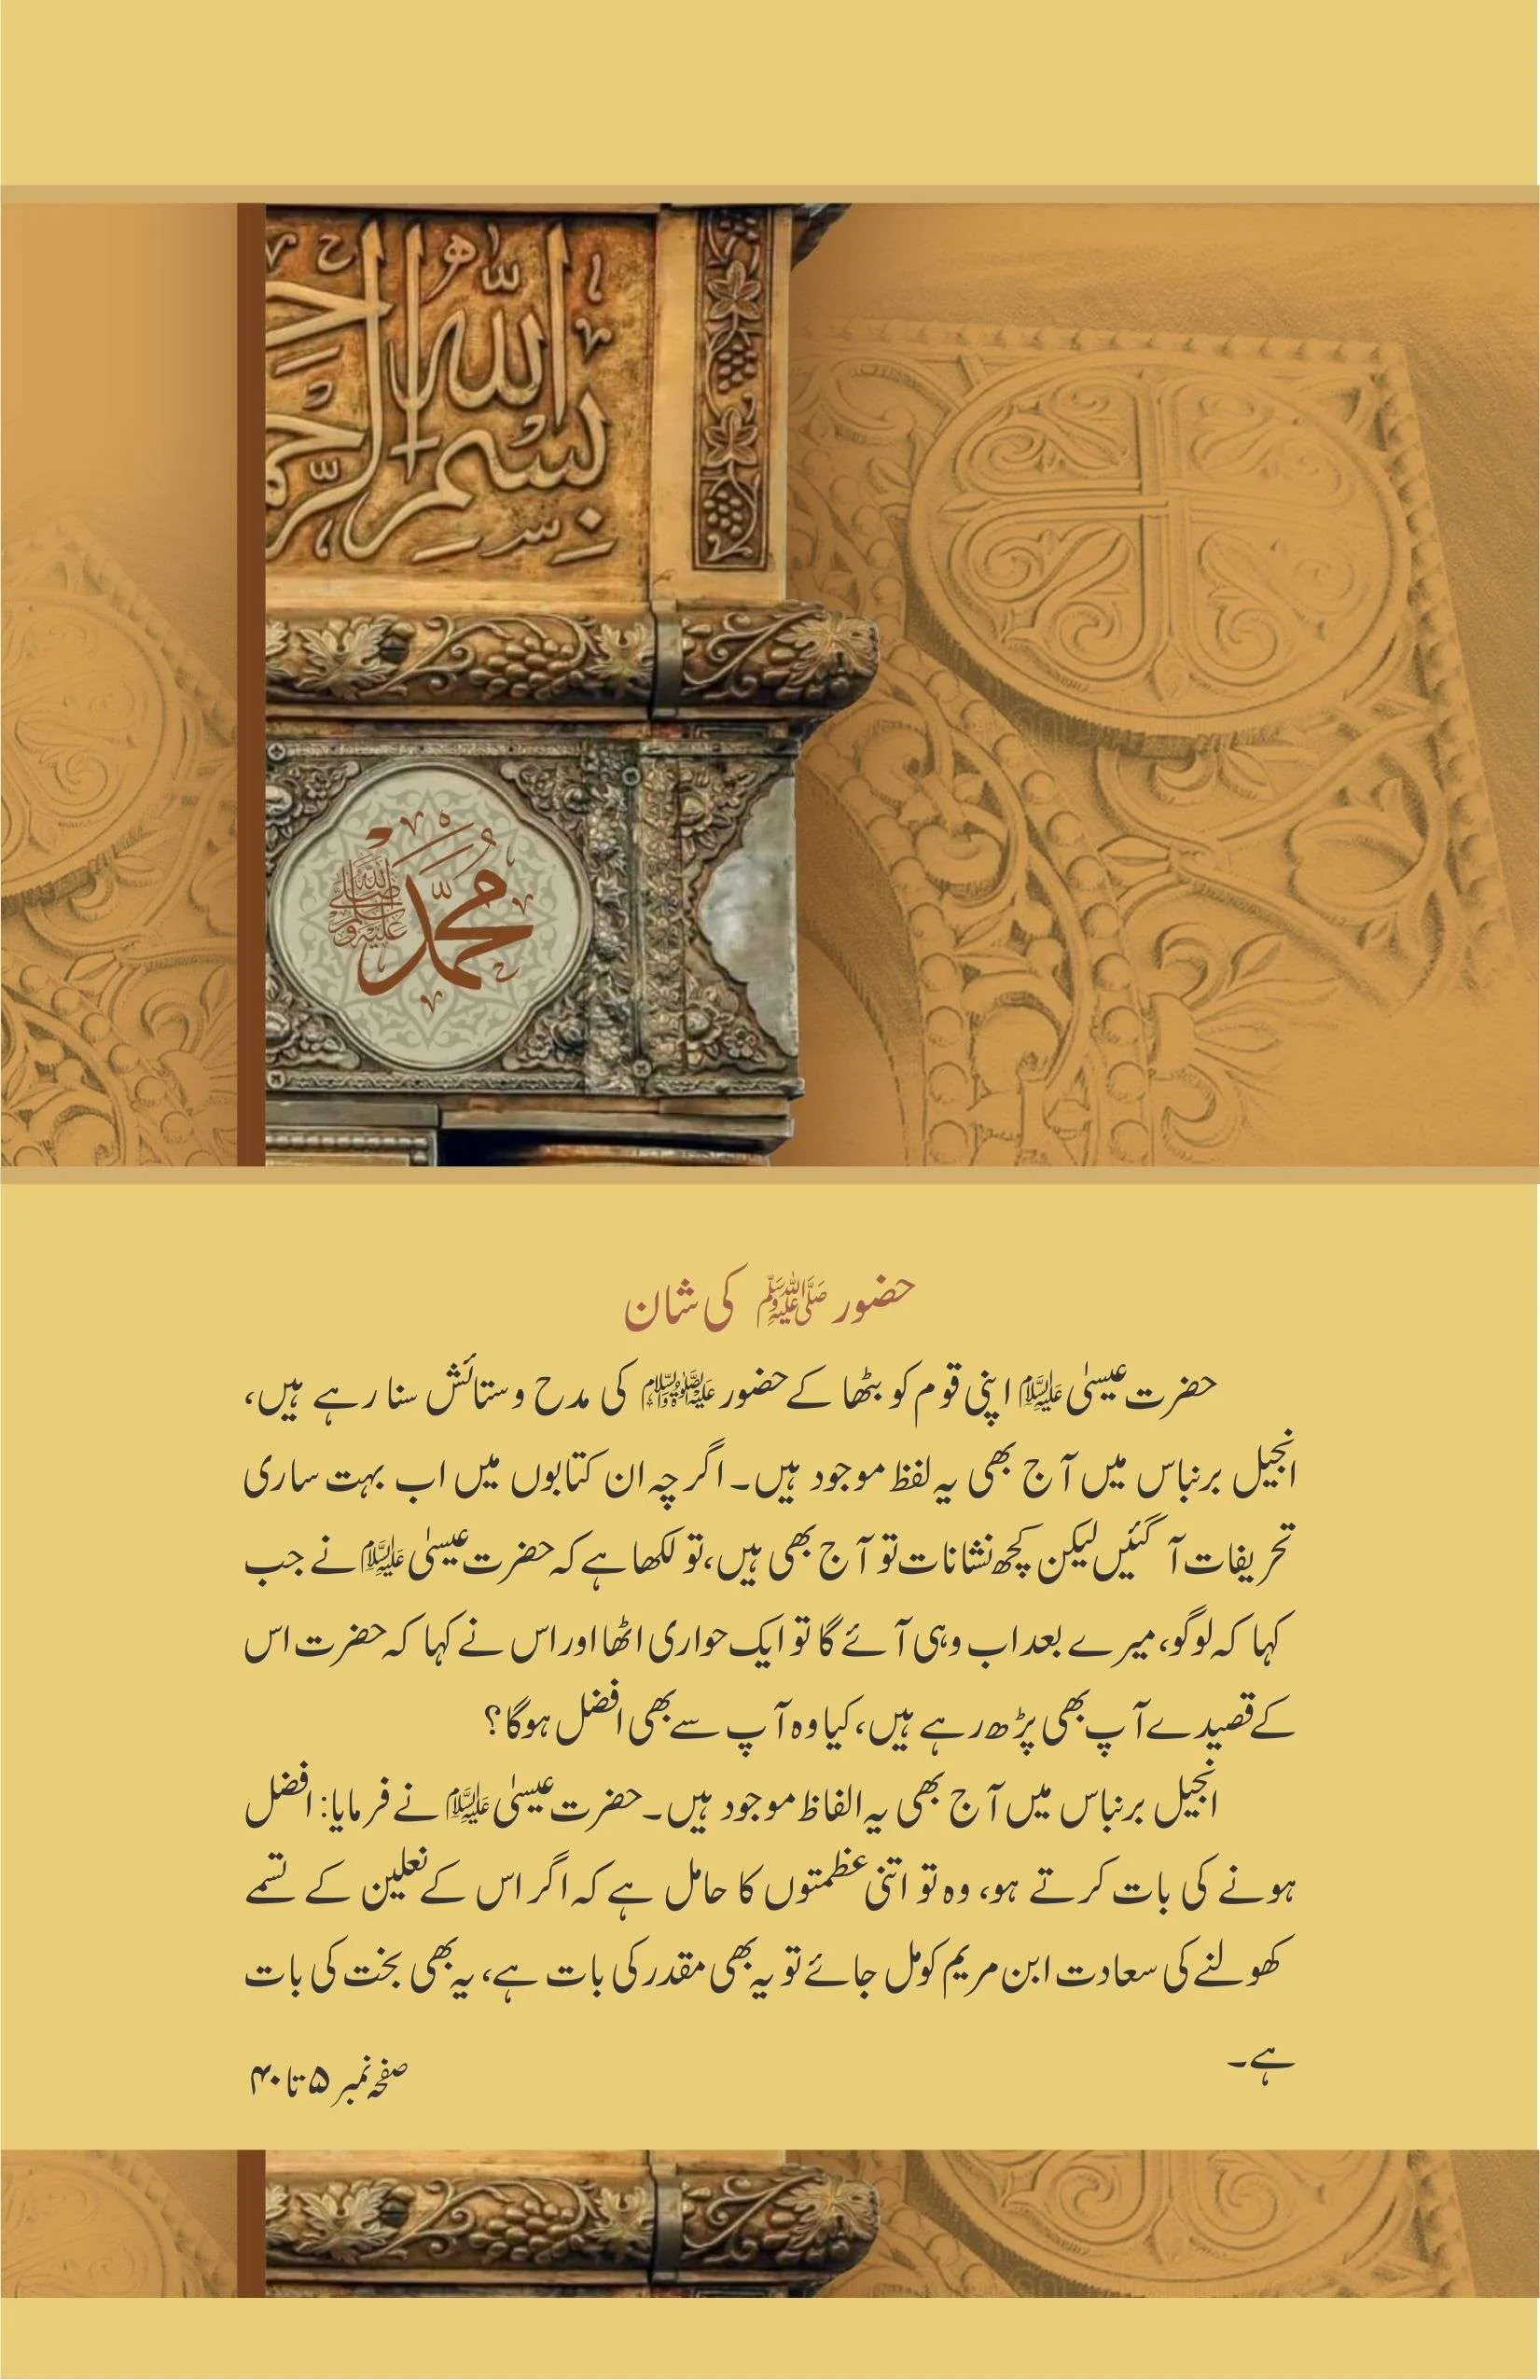 بِسْمِ اللهِ الرَّحْم
محمد صلی اللہ علیہ وسلم
حضور ﷺ کی شان
حضرت عیسیٰ علیہ السلام اپنی قوم کو بٹھا کے حضور علیہ الصلوٰۃ والسلام کی مدح و ستائش سنا رہے ہیں،
انجیل برنباس میں آج بھی یہ لفظ موجود ہیں۔ اگرچہ ان کتابوں میں اب بہت ساری
تحریفات آ گئیں لیکن کچھ نشانات تو آج بھی ہیں، تو لکھا ہے کہ حضرت عیسیٰ علیہ السلام نے جب
کہا کہ لوگو، میرے بعد اب وہی آئے گا تو ایک حواری اٹھا اور اس نے کہا کہ حضرت اس
کے قصیدے آپ بھی پڑھ رہے ہیں، کیا وہ آپ سے بھی افضل ہوگا؟
انجیل برنباس میں آج بھی یہ الفاظ موجود ہیں۔ حضرت عیسیٰ علیہ السلام نے فرمایا: افضل
ہونے کی بات کرتے ہو، وہ تو اتنی عظمتوں کا حامل ہے کہ اگر اس کے نعلین کے تسمے
کھولنے کی سعادت ابن مریم کو مل جائے تو یہ بھی مقدر کی بات ہے، یہ بھی بخت کی بات
ہے۔
صفحہ نمبر ۵ تا ۴۰